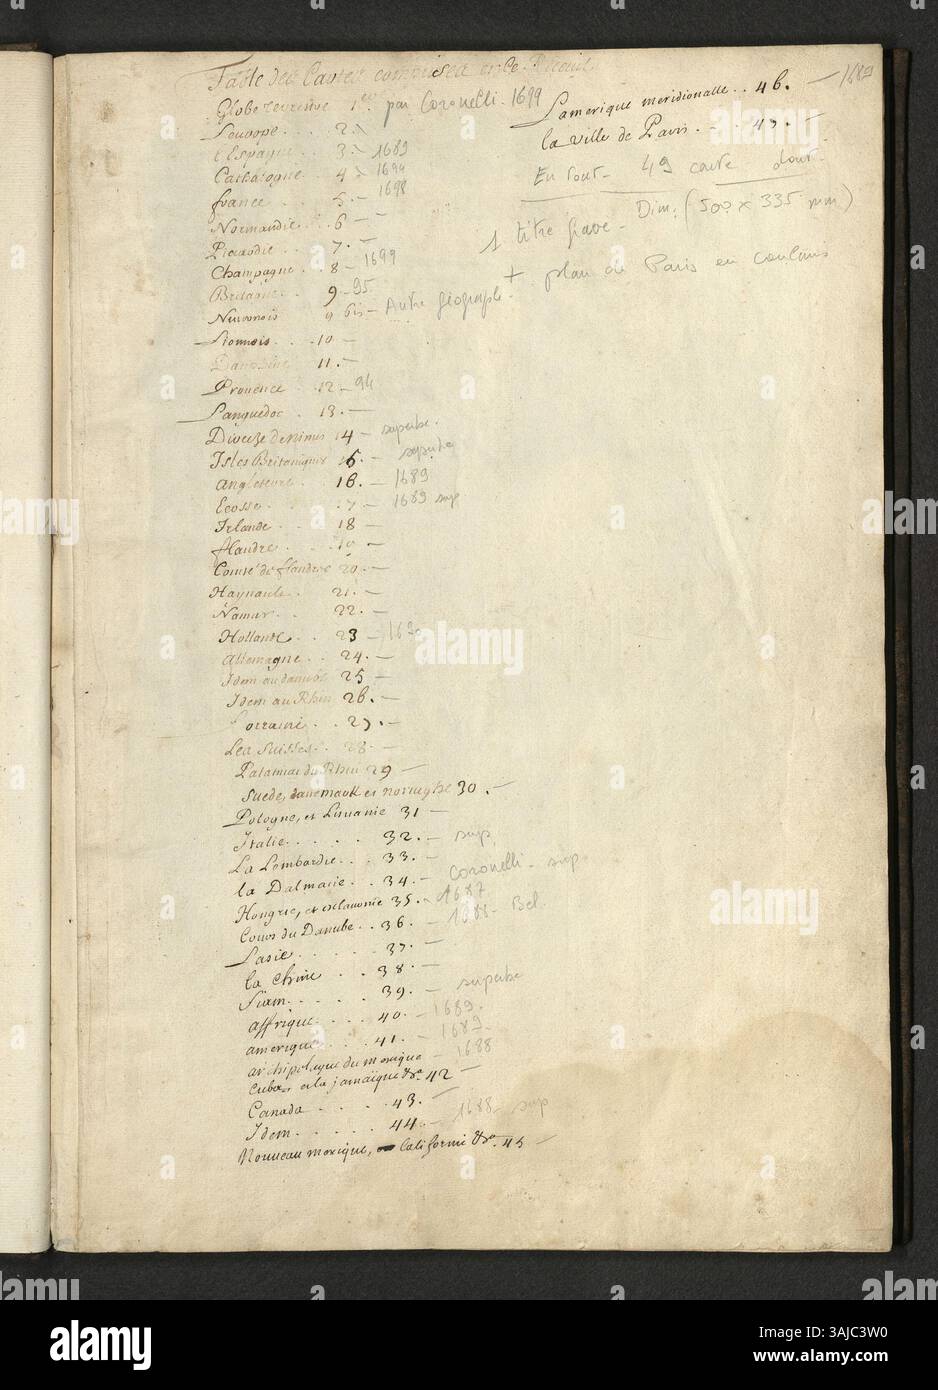 Table des Cartes comprises en ce Recueil
Globe terrestre 1er par Coronelli. 1699
L'europe . . . 2.
l'Espagne . . 3. 1689
Cathalogne . . 4 1694
france . . . 5. 1698
Normandie . 6 —
Picardie . . 7. —
Champagne . 8 — 1699
Bretagne . . 9 — 95
Nivernois 9 bis — Autre géographe.
Lionnois . . 10 —
Dauphiné 11. —
Provence . 12 — 94
Languedoc . 13. —
Diocèze de Nimes 14 — superbe.
Isles Britaniques 15. — superbe
angleterre . 16. — 1689
Ecosse . . 17 — 1689 sup
Irlande . . 18 —
flandre . . 19 —
Comté de flandre 20. —
Haynault . . 21. —
Namur . . 22. —
Hollande . . 23 —
allemagne . . 24. —
Idem au danube 25 —
Idem au Rhin 26. —
Lorraine . . 27. —
Les Suisses . . 28. —
Palatinat du Rhin 29 —
Suede, danemark et norveghe 30. —
Pologne, et Lituanie 31 —
Italie . . . . . 32. — sup
La Lombardie . . . 33. —
la Dalmacie . . 34. — Coronelli - sup
Hongrie, et esclavonie 35. - 1687
Cours du Danube . . 36. — 1688 - Bel.
Lasie . . . . . 37. —
la chine . . . 38. —
Siam . . . . . 39. — superbe
affrique . . . . 40. — 1689.
amerique . . . . 41. — 1689
archipelague du mexique — 1688
cuba, et la jamaïque &c. 42 —
Canada . . . . . 43. —
Idem . . . . . 44. — 1688 - sup
Nouveau mexique, Californie &c. 45 —
Lamerique meridionalle . . 46. — 1689
la ville de Paris . . . 47. —
En tout - 49 carte dont -
Dim: (500 x 335 mm)
1 titre gravé -
+ plan de Paris en couleurs
alamy
Image ID: 3AJC3W0
www.alamy.com